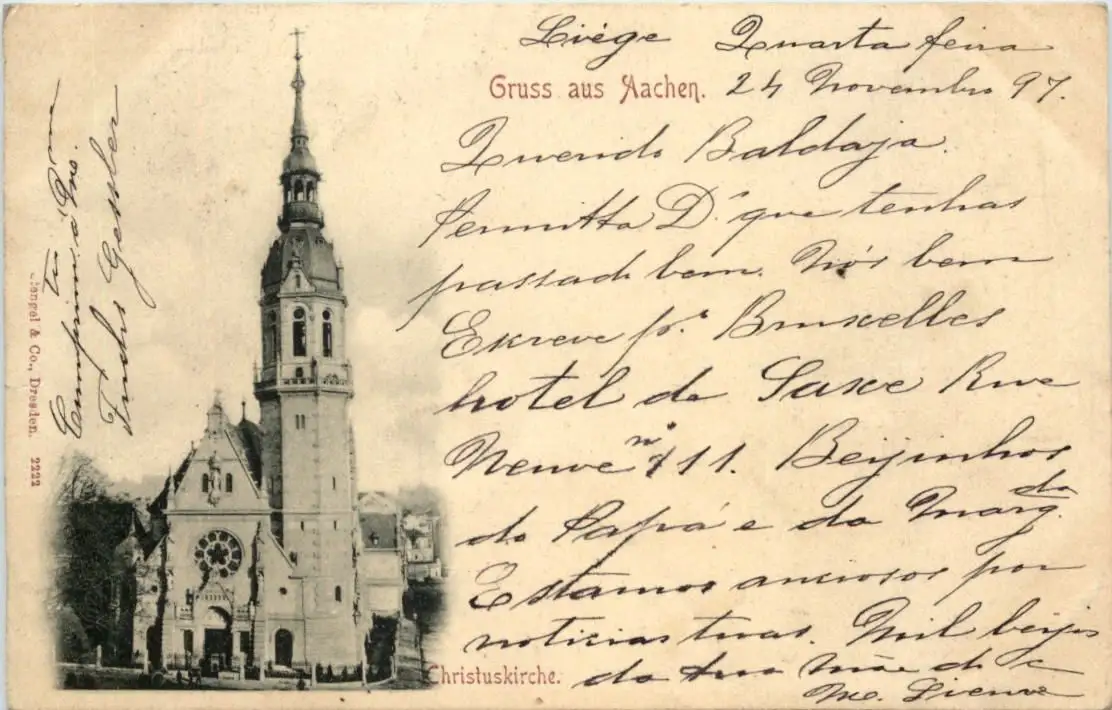 Liége Quarta feira
Gruss aus Aachen.
24 Novembro 97.
Querido Baldaja.
Permitta D.ˢ que tenhas
passado bem. Nós bem
Escreve p.ª Bruxelles
hotel de Saxe Rue
Neuve nº 11. Beijinhos
do Papá e da Marg.da
Estamos anciosos por
noticias tuas. Mil beijos
da tua Mãe
Christuskirche.
Stengel & Co., Dresden. 2222